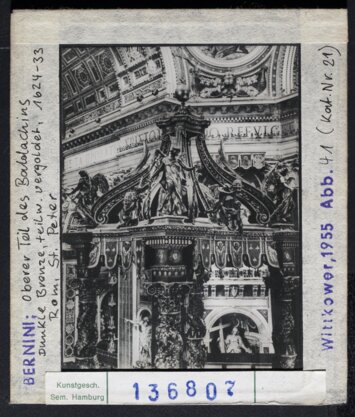 BERNINI: Oberer Teil des Baldachins
Dunkle Bronze, teilw. vergoldet, 1624-33
Rom, St. Peter
Wittkower, 1955 Abb. 41 (Kat. Nr. 21)
Kunstgesch.
Sem. Hamburg
136807